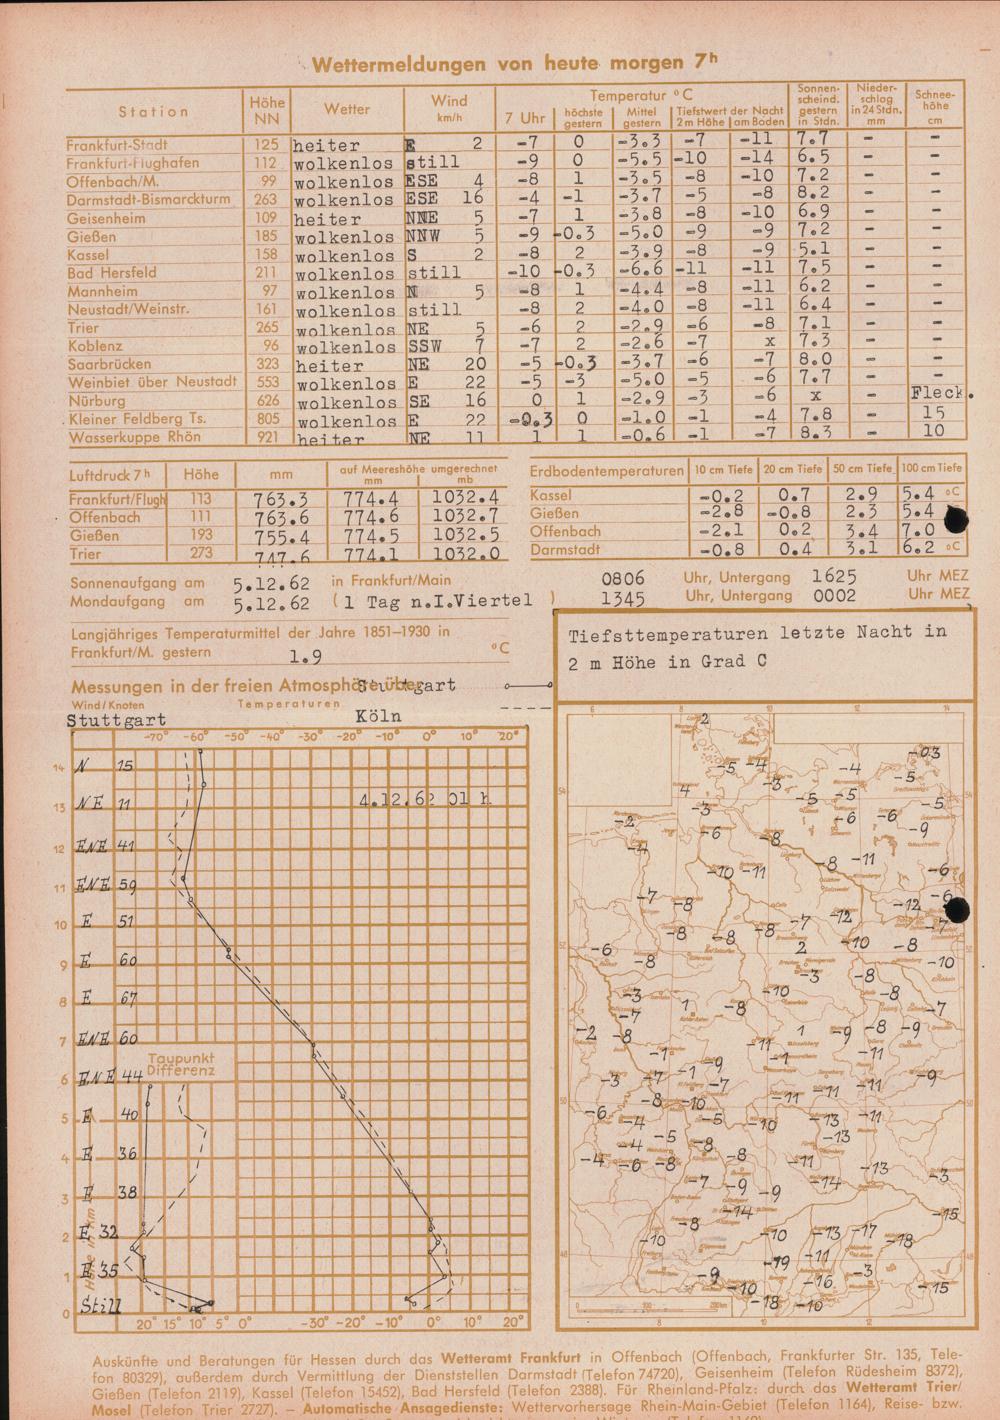 Wettermeldungen von heute morgen 7h
Station Höhe NN Wetter Wind km/h Temperatur °C Sonnenscheind. gestern in Stdn. Niederschlag in 24 Stdn. mm Schneehöhe cm
7 Uhr höchste gestern Mittel gestern Tiefstwert der Nacht 2m Höhe am Boden
Frankfurt-Stadt 125 heiter E 2 -7 0 -3.3 -7 -11 7.7 - -
Frankfurt-Flughafen 112 wolkenlos still -9 0 -5.5 -10 -14 6.5 - -
Offenbach/M. 99 wolkenlos ESE 4 -8 1 -3.5 -8 -10 7.2 - -
Darmstadt-Bismarckturm 263 wolkenlos ESE 16 -4 -1 -3.7 -5 -8 8.2 - -
Geisenheim 109 heiter NNE 5 -7 1 -3.8 -8 -10 6.9 - -
Gießen 185 wolkenlos NNW 5 -9 -0.3 -5.0 -9 -9 7.2 - -
Kassel 158 wolkenlos S 2 -8 2 -3.9 -8 -9 5.1 - -
Bad Hersfeld 211 wolkenlos still -10 -0.3 -6.6 -11 -11 7.5 - -
Mannheim 97 wolkenlos N 5 -8 1 -4.4 -8 -11 6.2 - -
Neustadt/Weinstr. 161 wolkenlos still -8 2 -4.0 -8 -11 6.4 - -
Trier 265 wolkenlos NE 5 -6 2 -2.9 -6 -8 7.1 - -
Koblenz 96 wolkenlos SSW 7 -7 2 -2.6 -7 x 7.3 - -
Saarbrücken 323 heiter NE 20 -5 -0.3 -3.7 -6 -7 8.0 - -
Weinbiet über Neustadt 553 wolkenlos E 22 -5 -3 -5.0 -5 -6 7.7 - -
Nürburg 626 wolkenlos SE 16 0 1 -2.9 -3 -6 x - Fleck.
Kleiner Feldberg Ts. 805 wolkenlos E 22 -0.3 0 -1.0 -1 -4 7.8 - 15
Wasserkuppe Rhön 921 heiter NE 11 1 1 -0.6 -1 -7 8.3 - 10
Luftdruck 7h Höhe mm auf Meereshöhe umgerechnet mm mb
Frankfurt/Flugh 113 763.3 774.4 1032.4
Offenbach 111 763.6 774.6 1032.7
Gießen 193 755.4 774.5 1032.5
Trier 273 747.6 774.1 1032.0
Erdbodentemperaturen 10 cm Tiefe 20 cm Tiefe 50 cm Tiefe 100 cm Tiefe
Kassel -0.2 0.7 2.9 5.4 °C
Gießen -2.8 -0.8 2.3 5.4
Offenbach -2.1 0.2 3.4 7.0
Darmstadt -0.8 0.4 3.1 6.2 °C
Sonnenaufgang am 5.12.62 in Frankfurt/Main 0806 Uhr, Untergang 1625 Uhr MEZ
Mondaufgang am 5.12.62 (1 Tag n.I.Viertel) 1345 Uhr, Untergang 0002 Uhr MEZ
Langjähriges Temperaturmittel der Jahre 1851–1930 in
Frankfurt/M. gestern 1.9 °C
Tiefsttemperaturen letzte Nacht in
2 m Höhe in Grad C
Messungen in der freien Atmosphäre über Stuttgart
Wind/Knoten Temperaturen
Stuttgart Köln
-70° -60° -50° -40° -30° -20° -10° 0° 10° 20°
14 N 15
13 NE 11 4.12.62 01 h
12 ENE 41
11 ENE 59
10 E 51
9 E 60
8 E 67
7 ENE 60
Taupunkt
Differenz
6 ENE 44
5 E 40
4 E 36
3 E 38
2 E 32
1 E 35
0 Still
Höhe in km
20° 15° 10° 5° 0° -30° -20° -10° 0° 10° 20°
6 8 10 12 14
2
-03
-5 -4 -4 -5
-3
4 -5 -5 -5
-3
-2 -6 -6 -9
-6 -8
-4 -8 -11
-10 -11 -6
-7 -8 -12 -6
-7 -12 -7
-8 -8 -8
-6 2 -10 -8
-8 -10
-3 -8
-3 -10 -8
-7 1 -8 -7
-2 -8 1 -9 -8 -9
-1 -11 -11
-1 -9 -1
-3 -7 -7 -11 -9
-8 -10 -11 -11
-6 -4 -5 -10 -13 -11
-4 -5 -8 -13
-4 -6 -8 -8 -11 -13
-7 -9 -9 -14 -3
-14 -15
-8
-10 -10 -13 -17 -18
-19 -11
-9 -16 -3
-10 -15
-18 -10
8 10 12
Auskünfte und Beratungen für Hessen durch das Wetteramt Frankfurt in Offenbach (Offenbach, Frankfurter Str. 135, Tele-
fon 80329), außerdem durch Vermittlung der Dienststellen Darmstadt (Telefon 74720), Geisenheim (Telefon Rüdesheim 8372),
Gießen (Telefon 2119), Kassel (Telefon 15452), Bad Hersfeld (Telefon 2388). Für Rheinland-Pfalz: durch das Wetteramt Trier/
Mosel (Telefon Trier 2727). – Automatische Ansagedienste: Wettervorhersage Rhein-Main-Gebiet (Telefon 1164), Reise- bzw.